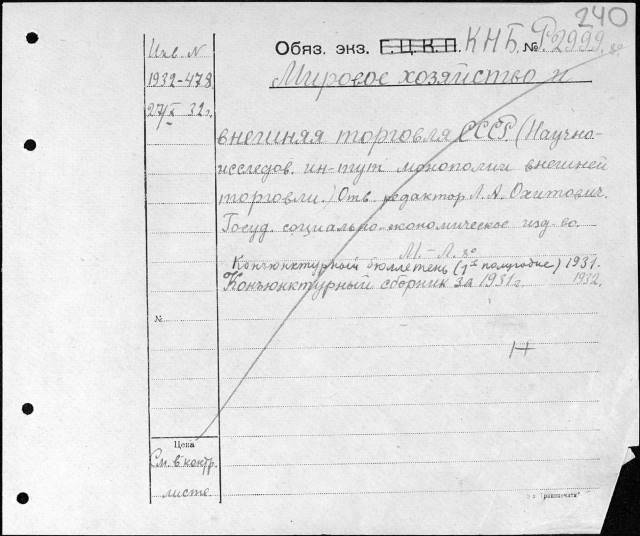 240
Инв. N
1932-478
27/X 32 г.
Обяз. экз. Г.Ц.К.П. КНБ. № Р2999.
Мировое хозяйство и
внешняя торговля СССР (Научно-
исследов. ин-тут монополии внешней
торговли.) Отв. редактор Л.А. Охитович.
Госуд. социально-экономическое изд-во.
М.-Л. 8°
Конъюнктурный бюллетень (1е полугодие) 1931.
Конъюнктурный сборник за 1931 г. 1932.
№
Н
Цена
См. в контр.
листе